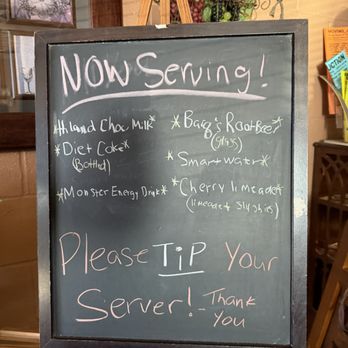 Now Serving!
Hiland Choc Milk*
*Diet Coke*
(Bottled)
*Monster Energy Drink*
*Barq's Rootbeer*
(glass)
*Smartwater*
*Cherry limeade*
(limeade + slushies)
Please TiP Your
Server! - Thank
You